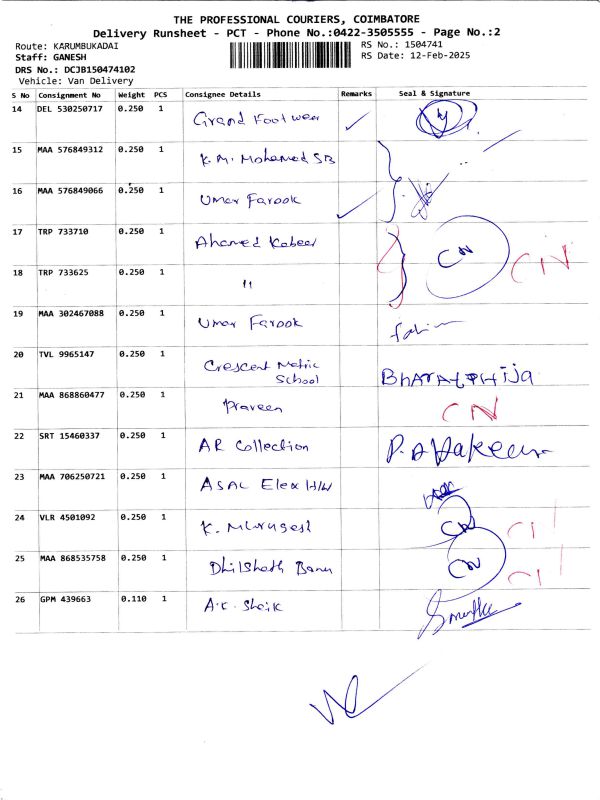 THE PROFESSIONAL COURIERS, COIMBATORE
Delivery Runsheet - PCT - Phone No.:0422-3505555 - Page No.:2
Route: KARUMBUKADAI RS No.: 1504741
Staff: GANESH RS Date: 12-Feb-2025
DRS No.: DCJB150474102
Vehicle: Van Delivery
S No Consignment No Weight PCS Consignee Details Remarks Seal & Signature
14 DEL 530250717 0.250 1 Grand Foot wear
15 MAA 576849312 0.250 1 K. M. Mohamed SB
16 MAA 576849066 0.250 1 Umar Farook
17 TRP 733710 0.250 1 Ahamed Kabeer CN CN
18 TRP 733625 0.250 1 11
19 MAA 302467088 0.250 1 Umar Farook
20 TVL 9965147 0.250 1 Crescent Matric
School
21 MAA 868860477 0.250 1 Praveen CN
22 SRT 15460337 0.250 1 AR Collection
23 MAA 706250721 0.250 1 ASAL Elex H/W
24 VLR 4501092 0.250 1 K. Murugesh CN
25 MAA 868535758 0.250 1 Dhilshath Banu CN
26 GPM 439663 0.110 1 A.K. Shaik